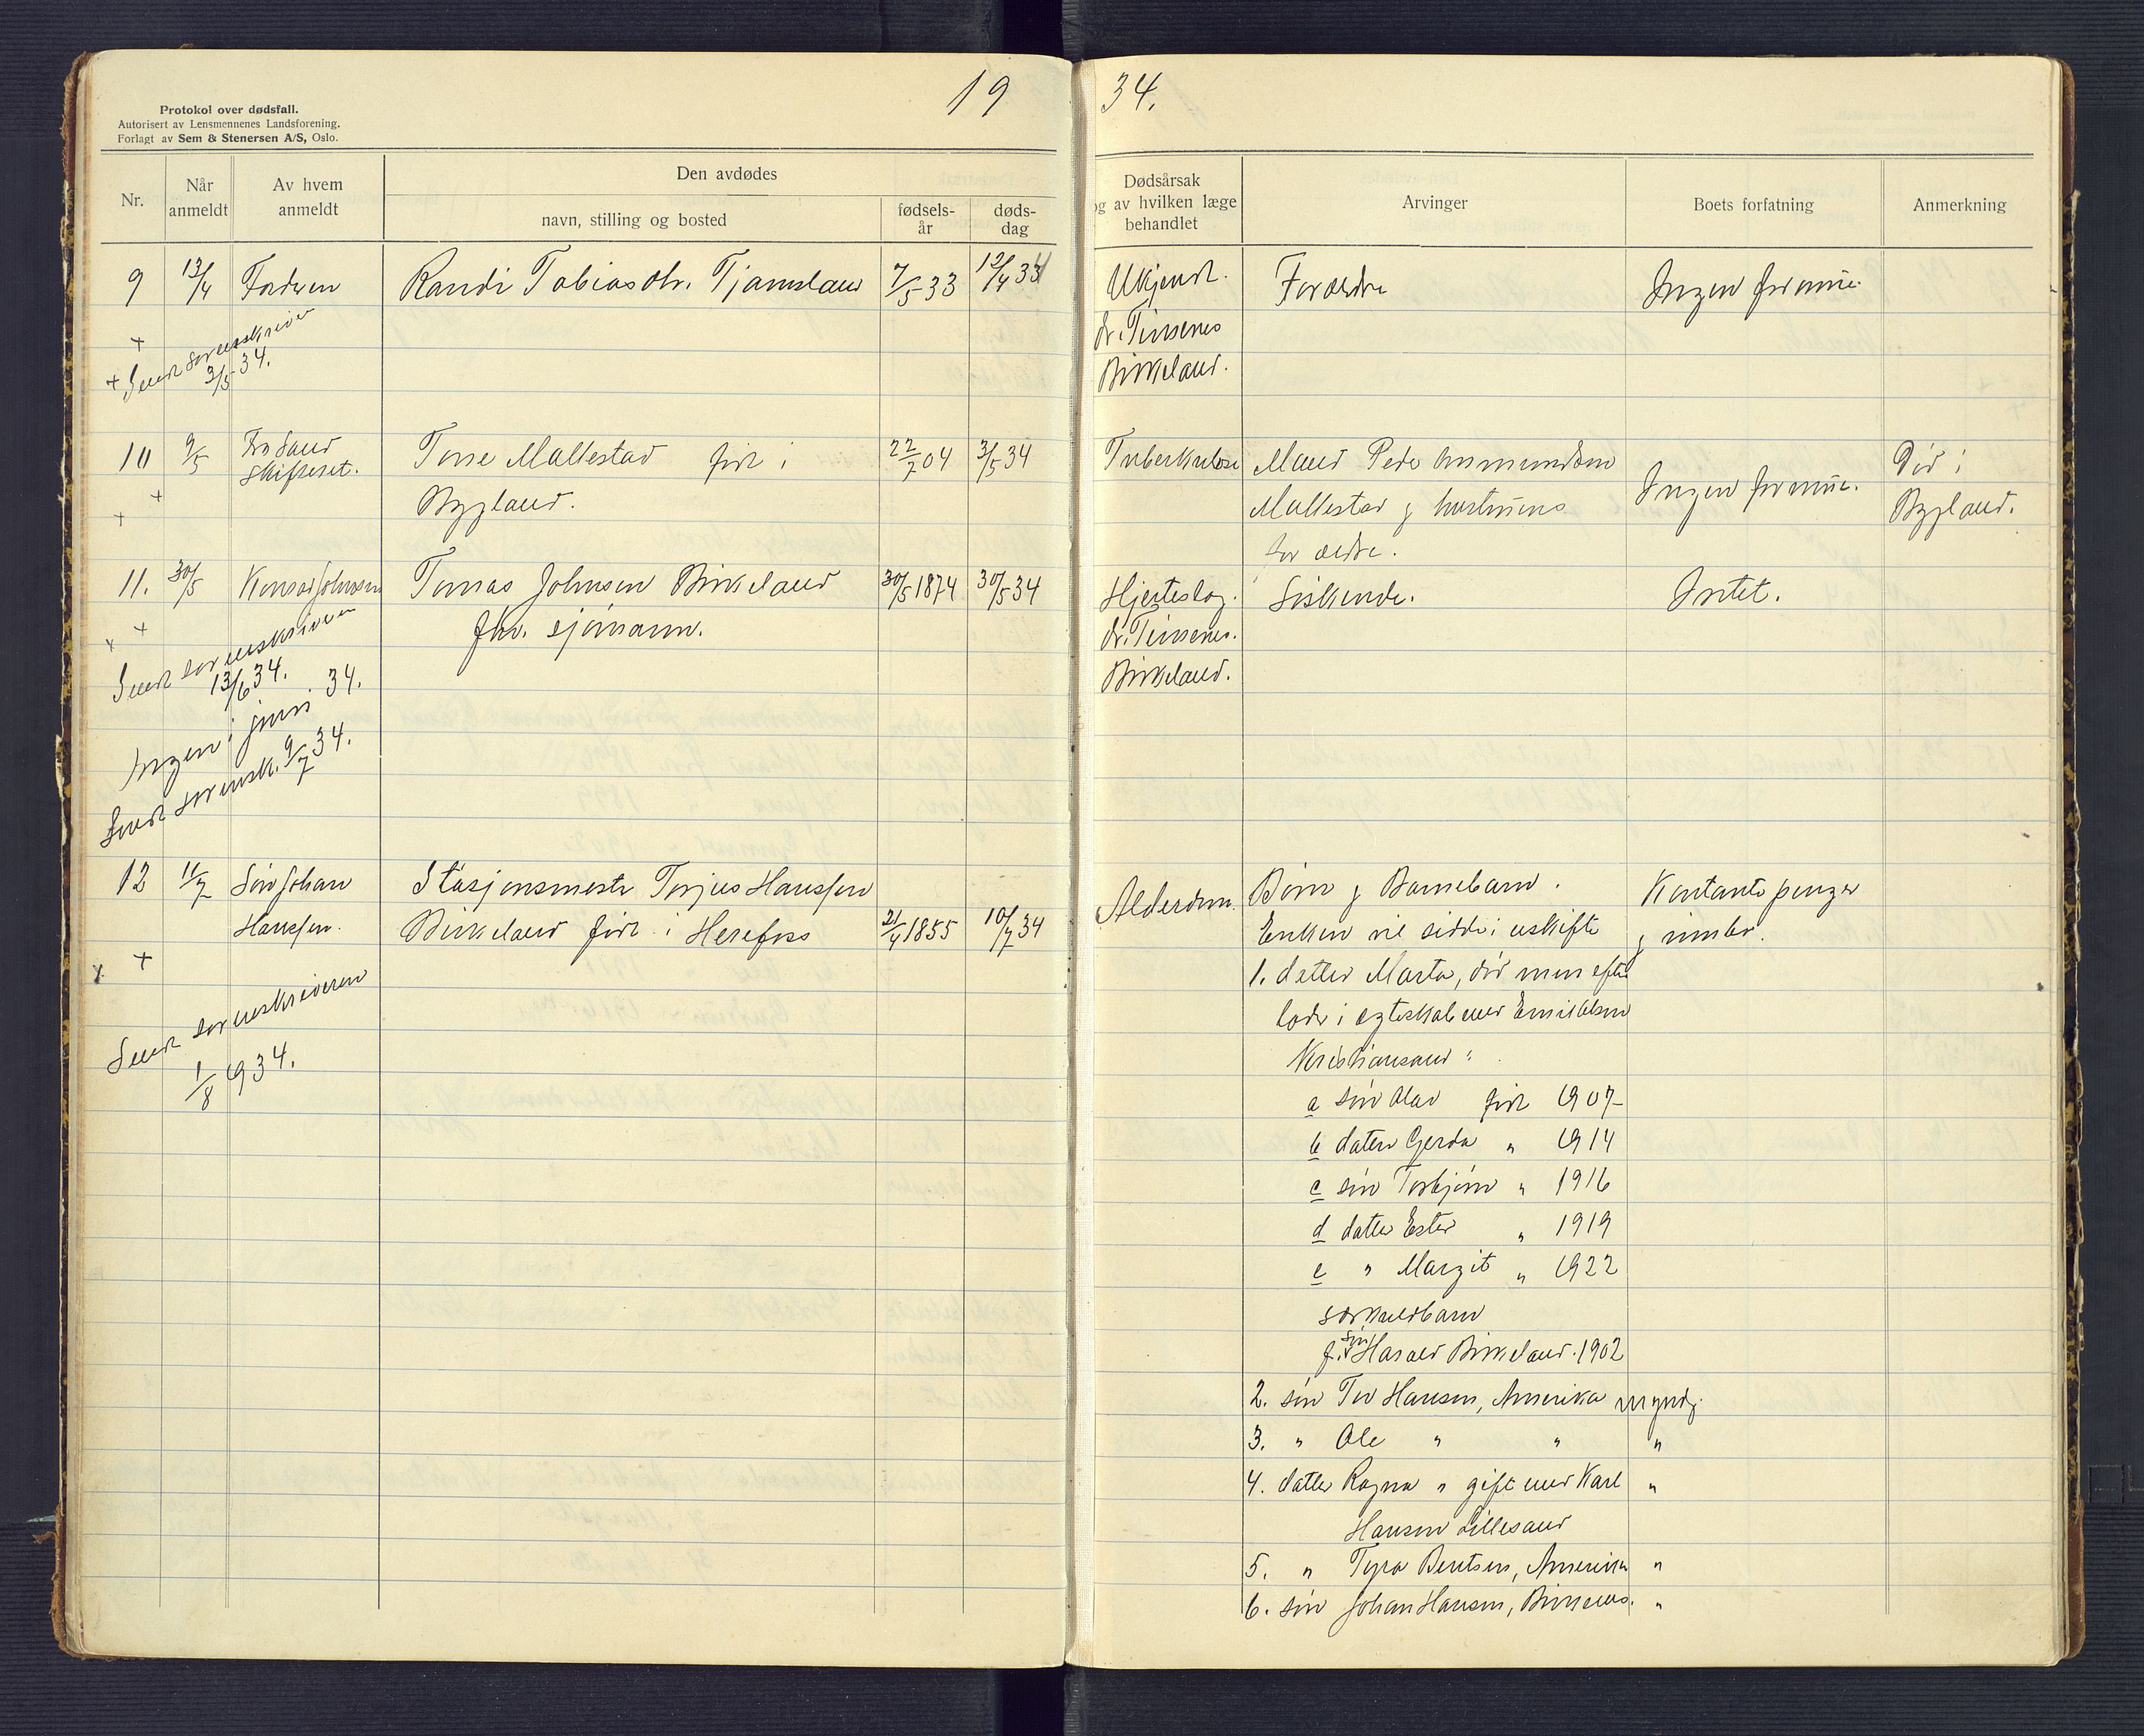 19 34.
Protokol over dødsfall.
Autorisert av Lensmennenes Landsforening.
Forlagt av Sem & Stenersen A/S, Oslo.
Nr.
Når anmeldt
Av hvem anmeldt
Den avdødes
navn, stilling og bosted
fødsels-
år
døds-
dag
Dødsårsak
og av hvilken læge
behandlet
Arvinger
Boets forfatning
Anmerkning
9 13/4 Faderen Randi Tobiasdtr. Tjamsland 7/5 33 12/4 34 Ukjendt. Forældre Ingen formue.
dr. Tinsenes
Birkeland.
+
+ Sendt sorenskriver
3/5 34.
10 9/5 Fra Sand Torre Mallestad født i 22/7 04 3/5 34 Tuberkulose Mand Peder Ommundsen Ingen formue. Død i
skifteret. Bygland. Mallestad & hustruens Bygland.
forældre.
+
+
11. 30/5 Konrad Johnsen Tomas Johnsen Birkeland 30/5 1874 30/5 34 Hjerteslag. Siskende. Intet.
fhv. sjømann. dr. Tinsenes.
Birkeland.
x +
Sendt sorenskriveren
13/6 34.
Ingen i juni 34.
Sendt sorensk. 9/7 34.
12 11/7 Søn Johan Stasjonsmester Terjus Hanssen Alderdom. Børn & Barnebarn. Kontante penger
Hanssen. Birkeland født i Herefoss 21/4 1855 10/7 34 Enken vil sidde i uskifte & innbo.
x +
Sendt sorenskriveren
1/8 1934.
1. datter Marta, død men efter
lader i egteskab med Emil Olsen
Kristiansand:
a søn Olav født 1907
b datter Gerda " 1914
c søn Torbjørn " 1916
d datter Ester " 1919
e " Margit " 1922
særkuldbarn
f. søn Harald Birkeland. 1902
2. søn Tor Hansen, Amerika myndig.
3. " Ole " " "
4. datter Ragna " gift med Karl "
Hansen Lillesand
5. " Tyra Bentsen, Amerika "
6. søn Johan Hansen, Birkenes. "